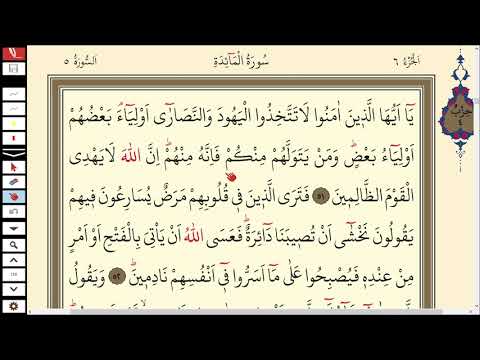 اَلْجُزْءُ ٦
سُورَةُ الْمَٓائِدَةِ
اَلسُّورَةُ ٥
حِزْب
٤
يَٓا اَيُّهَا الَّذ۪ينَ اٰمَنُوا لَا تَتَّخِذُوا الْيَهُودَ وَالنَّصَارٰٓى اَوْلِيَٓاءَۢ بَعْضُهُمْ
اَوْلِيَٓاءُ بَعْضٍۜ وَمَنْ يَتَوَلَّهُمْ مِنْكُمْ فَاِنَّهُ مِنْهُمْۜ اِنَّ اللّٰهَ لَا يَهْدِي
الْقَوْمَ الظَّالِم۪ينَ ﴿٥١﴾ فَتَرَى الَّذ۪ينَ ف۪ي قُلُوبِهِمْ مَرَضٌ يُسَارِعُونَ ف۪يهِمْ
يَقُولُونَ نَخْشٰٓى اَنْ تُص۪يبَنَا دَٓائِرَةٌۜ فَعَسَى اللّٰهُ اَنْ يَأْتِيَ بِالْفَتْحِ اَوْ اَمْرٍ
مِنْ عِنْدِه۪ فَيُصْبِحُوا عَلٰى مَٓا اَسَرُّوا ف۪ٓي اَنْفُسِهِمْ نَادِم۪ينَۜ ﴿٥٢﴾ وَيَقُولُ